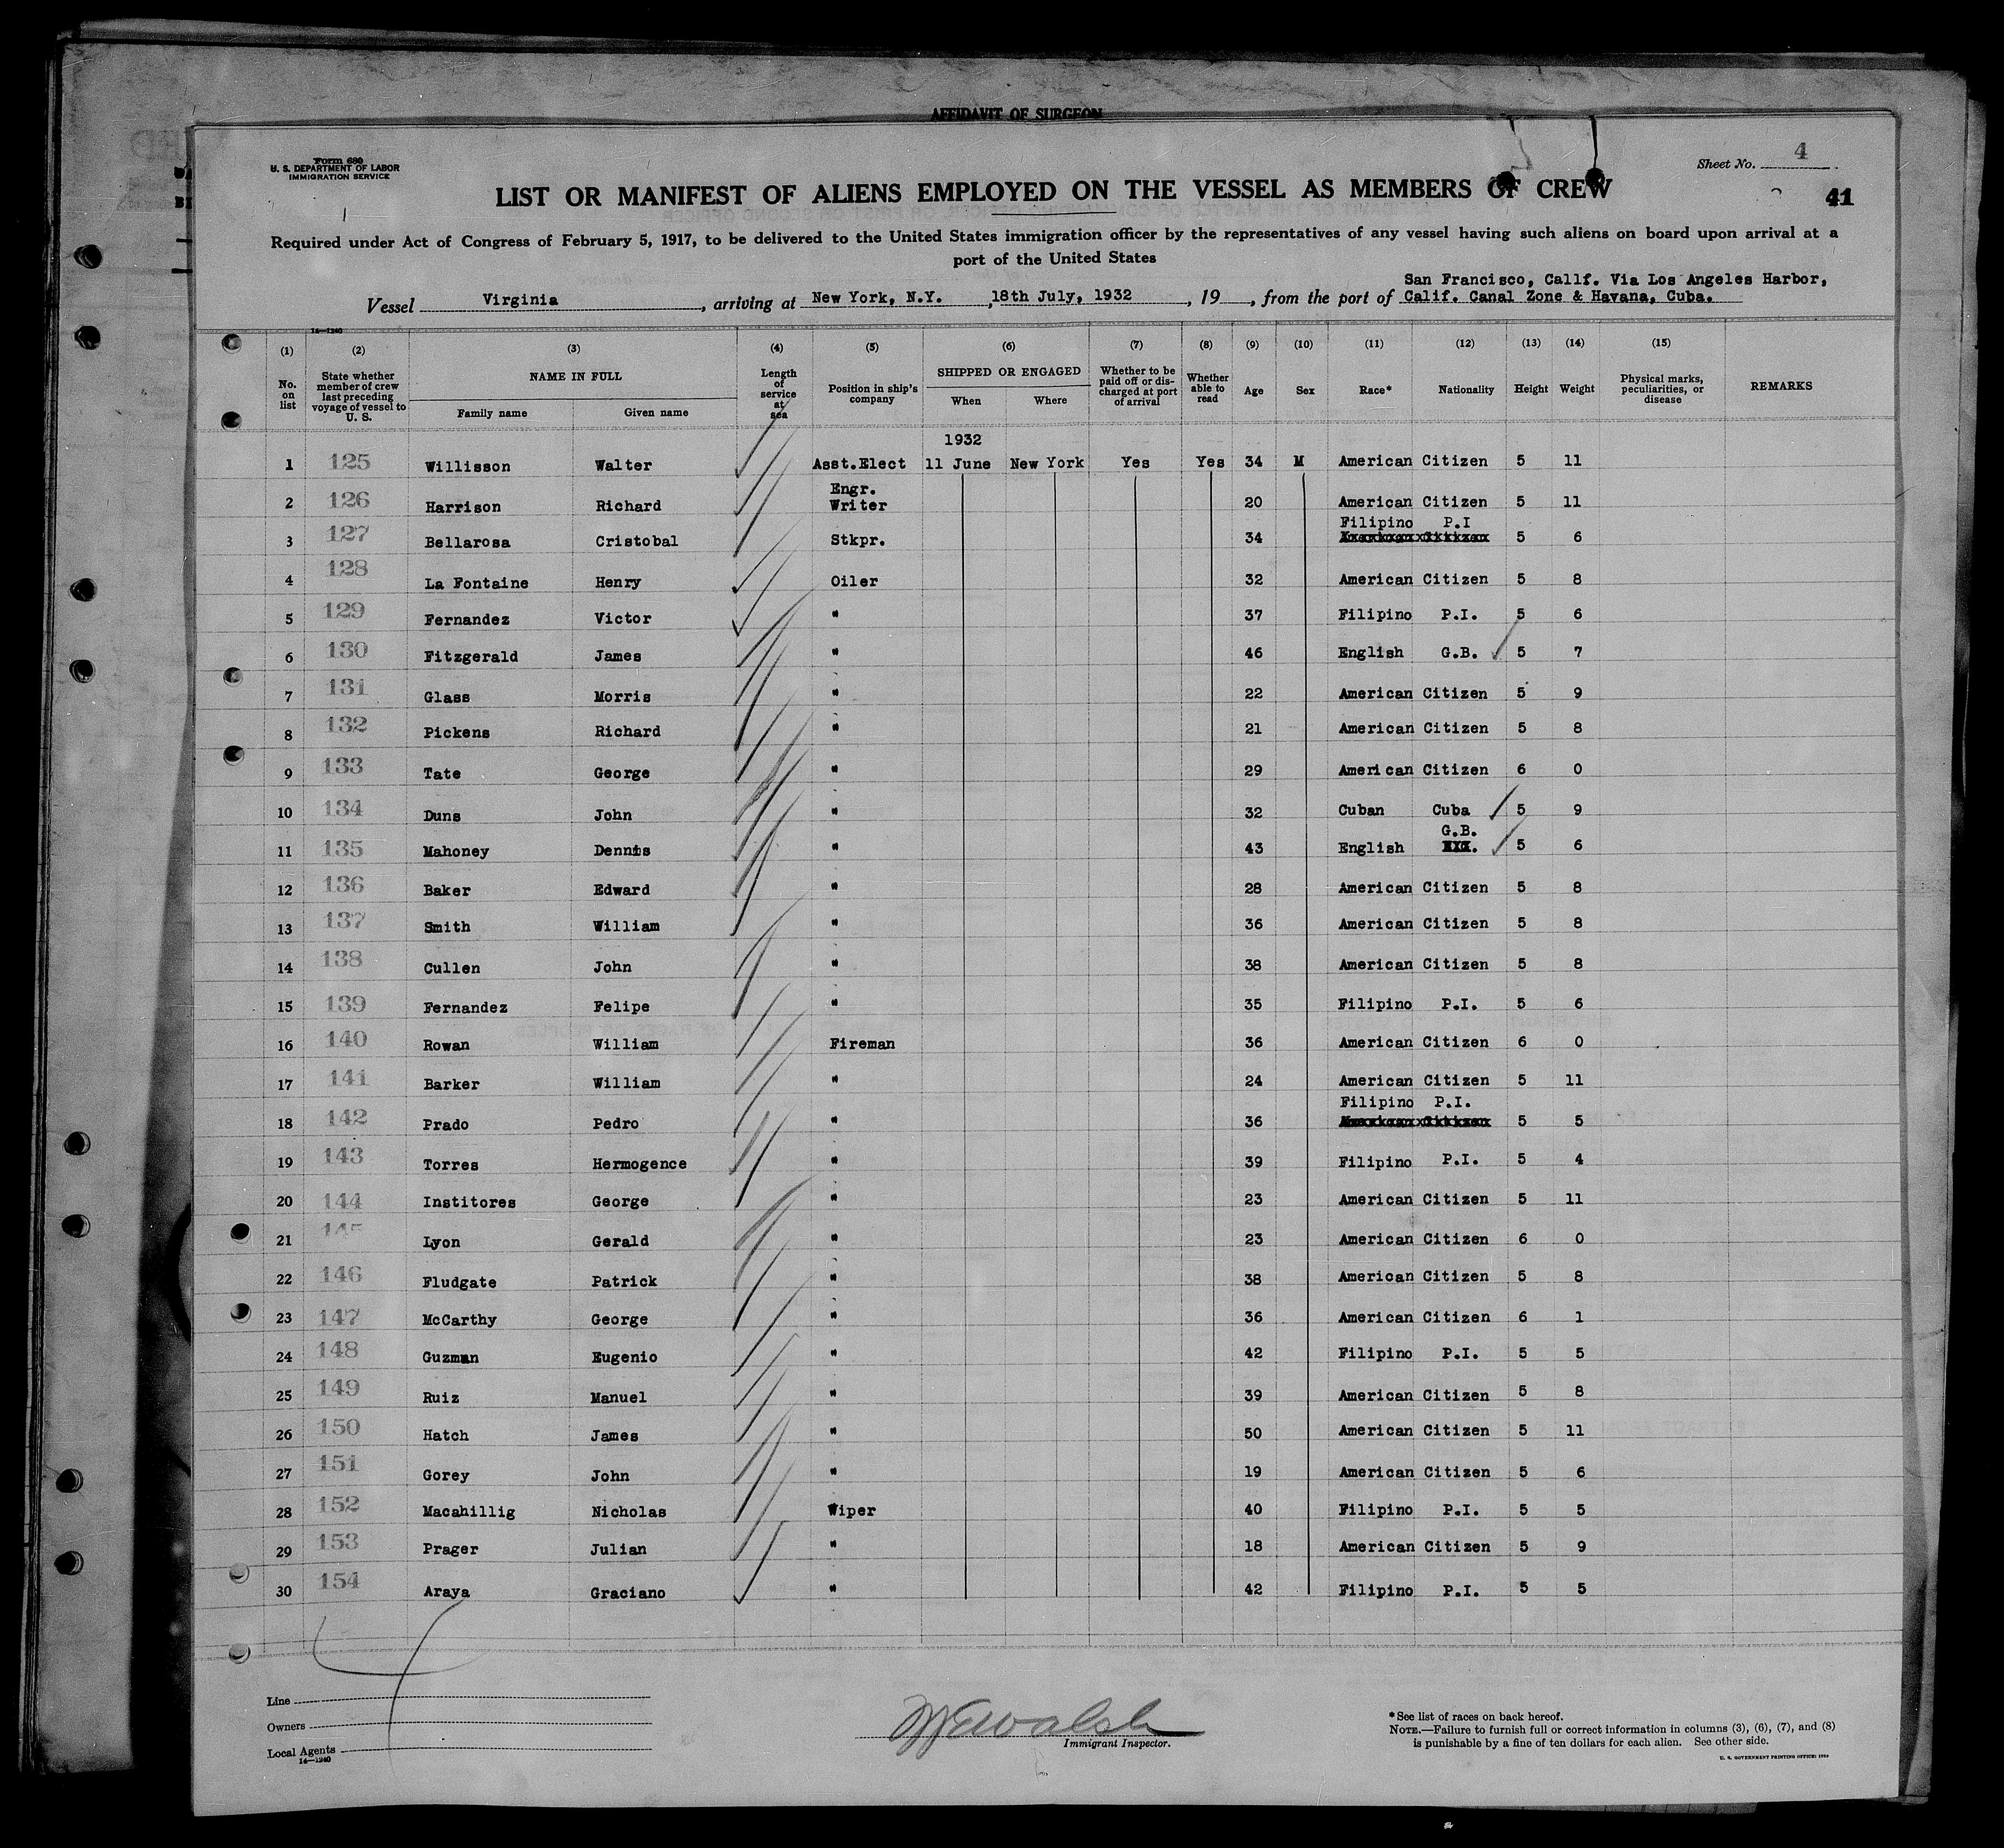 AFFIDAVIT OF SURGEON
Form 680
U. S. DEPARTMENT OF LABOR
IMMIGRATION SERVICE
Sheet No. 4
LIST OR MANIFEST OF ALIENS EMPLOYED ON THE VESSEL AS MEMBERS OF CREW
41
Required under Act of Congress of February 5, 1917, to be delivered to the United States immigration officer by the representatives of any vessel having such aliens on board upon arrival at a
port of the United States
San Francisco, Calif. Via Los Angeles Harbor,
Vessel Virginia, arriving at New York, N.Y., 18th July, 1932, 19, from the port of Calif. Canal Zone & Havana, Cuba.
14—1240
(1) (2) (3) (4) (5) (6) (7) (8) (9) (10) (11) (12) (13) (14) (15)
No. on list
State whether member of crew last preceding voyage of vessel to U. S.
NAME IN FULL
Family name Given name
Length of service at sea
Position in ship's company
SHIPPED OR ENGAGED
When Where
Whether to be paid off or discharged at port of arrival
Whether able to read
Age Sex Race* Nationality Height Weight
Physical marks, peculiarities, or disease
REMARKS
1932
1 125 Willisson Walter Asst.Elect 11 June New York Yes Yes 34 M American Citizen 5 11
Engr.
2 126 Harrison Richard Writer 20 American Citizen 5 11
Filipino P.I
3 127 Bellarosa Cristobal Stkpr. 34 5 6
4 128 La Fontaine Henry Oiler 32 American Citizen 5 8
5 129 Fernandez Victor " 37 Filipino P.I. 5 6
6 130 Fitzgerald James " 46 English G.B. 5 7
7 131 Glass Morris " 22 American Citizen 5 9
8 132 Pickens Richard " 21 American Citizen 5 8
9 133 Tate George " 29 American Citizen 6 0
10 134 Duns John " 32 Cuban Cuba 5 9
G.B.
11 135 Mahoney Dennis " 43 English 5 6
12 136 Baker Edward " 28 American Citizen 5 8
13 137 Smith William " 36 American Citizen 5 8
14 138 Cullen John " 38 American Citizen 5 8
15 139 Fernandez Felipe " 35 Filipino P.I. 5 6
16 140 Rowan William Fireman 36 American Citizen 6 0
17 141 Barker William " 24 American Citizen 5 11
Filipino P.I.
18 142 Prado Pedro " 36 5 5
19 143 Torres Hermogence " 39 Filipino P.I. 5 4
20 144 Institores George " 23 American Citizen 5 11
21 145 Lyon Gerald " 23 American Citizen 6 0
22 146 Fludgate Patrick " 38 American Citizen 5 8
23 147 McCarthy George " 36 American Citizen 6 1
24 148 Guzman Eugenio " 42 Filipino P.I. 5 5
25 149 Ruiz Manuel " 39 American Citizen 5 8
26 150 Hatch James " 50 American Citizen 5 11
27 151 Gorey John " 19 American Citizen 5 6
28 152 Macahillig Nicholas Wiper 40 Filipino P.I. 5 5
29 153 Prager Julian " 18 American Citizen 5 9
30 154 Araya Graciano " 42 Filipino P.I. 5 5
Line
Owners
Local Agents
14—1240
Walsh
Immigrant Inspector.
*See list of races on back hereof.
NOTE.—Failure to furnish full or correct information in columns (3), (6), (7), and (8)
is punishable by a fine of ten dollars for each alien. See other side.
U. S. GOVERNMENT PRINTING OFFICE: 1930